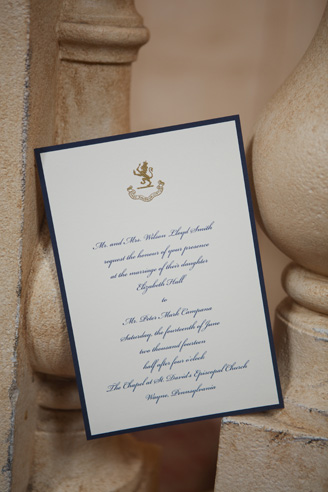 Mr. and Mrs. Wilson Lloyd Smith
request the honour of your presence
at the marriage of their daughter
Elizabeth Hall
to
Mr. Peter Mark Compana
Saturday, the fourteenth of June
two thousand fourteen
half after four o'clock
The Chapel at St. David's Episcopal Church
Wayne, Pennsylvania